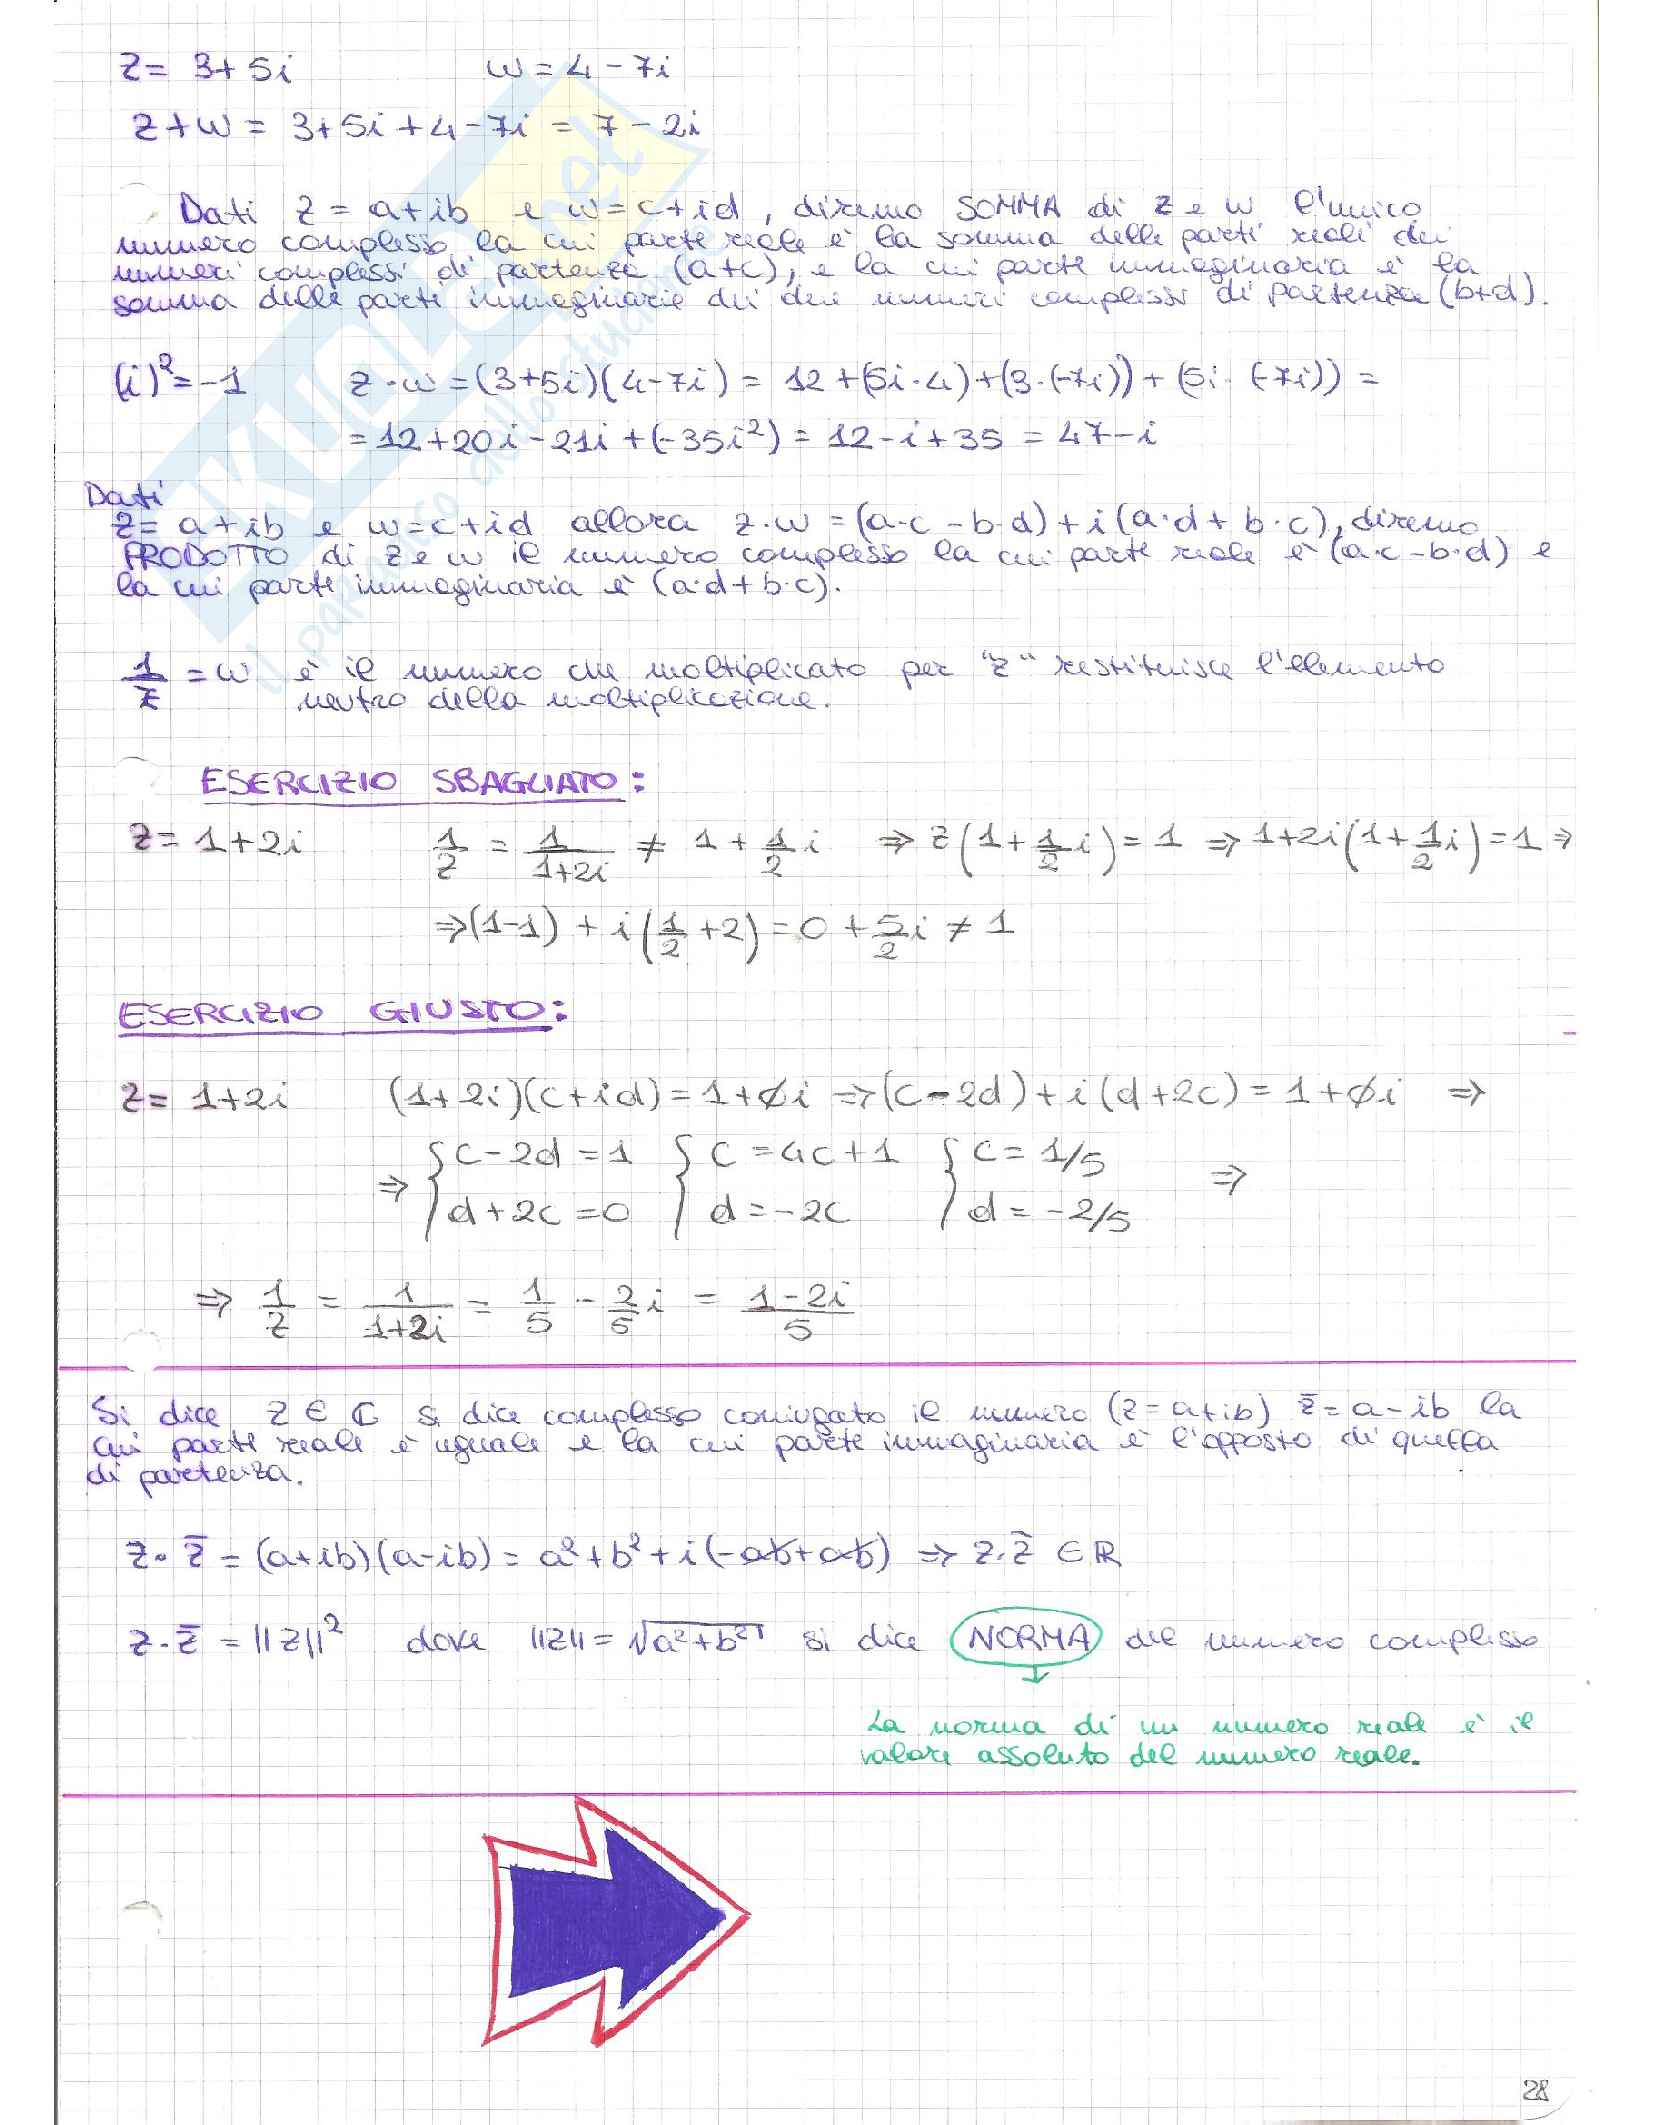 Z = 3+5i w = 4-7i
Z+w = 3+5i+4-7i = 7-2i
Dati z = a+ib e w=c+id, diremo SOMMA di z e w l'unico
numero complesso la cui parte reale è la somma delle parti reali dei
numeri complessi di partenza (a+c), e la cui parte immaginaria è la
somma delle parti immaginarie dei due numeri complessi di partenza (b+d).
(i)²=-1 z·w=(3+5i)(4-7i) = 12+(5i·4)+(3·(-7i))+(5i·(-7i)) =
=12+20i-21i+(-35i²) = 12-i+35 = 47-i
Dati
z= a+ib e w=c+id allora z·w=(a·c-b·d)+i(a·d+b·c), diremo
PRODOTTO di z e w il numero complesso la cui parte reale è (a·c-b·d) e
la cui parte immaginaria è (a·d+b·c).
1/z = w è il numero che moltiplicato per "z" restituisce l'elemento
neutro della moltiplicazione.
ESERCIZIO SBAGLIATO:
z= 1+2i 1/z = 1/(1+2i) ≠ 1+1/2 i ⇒ z(1+1/2 i)=1 ⇒ 1+2i(1+1/2 i)=1 ⇒
⇒(1-1) + i(1/2+2) = 0+5/2 i ≠ 1
ESERCIZIO GIUSTO:
z= 1+2i (1+2i)(c+id)=1+∅i ⇒ (c-2d)+i(d+2c)=1+∅i ⇒
⇒ { c-2d=1 { c=4c+1 { c=1/5 ⇒
{ d+2c=0 { d=-2c { d=-2/5
⇒ 1/z = 1/(1+2i) = 1/5 - 2/5 i = (1-2i)/5
Si dice z ∈ ℂ si dice complesso coniugato il numero (z=a+ib) z̄=a-ib la
cui parte reale è uguale e la cui parte immaginaria è l'opposto di quella
di partenza.
z·z̄ = (a+ib)(a-ib) = a²+b²+i(-ab+ab) ⇒ z·z̄ ∈ ℝ
z·z̄ = ||z||² dove ||z||=√(a²+b²) si dice NORMA del numero complesso
La norma di un numero reale è il
valore assoluto del numero reale.
28